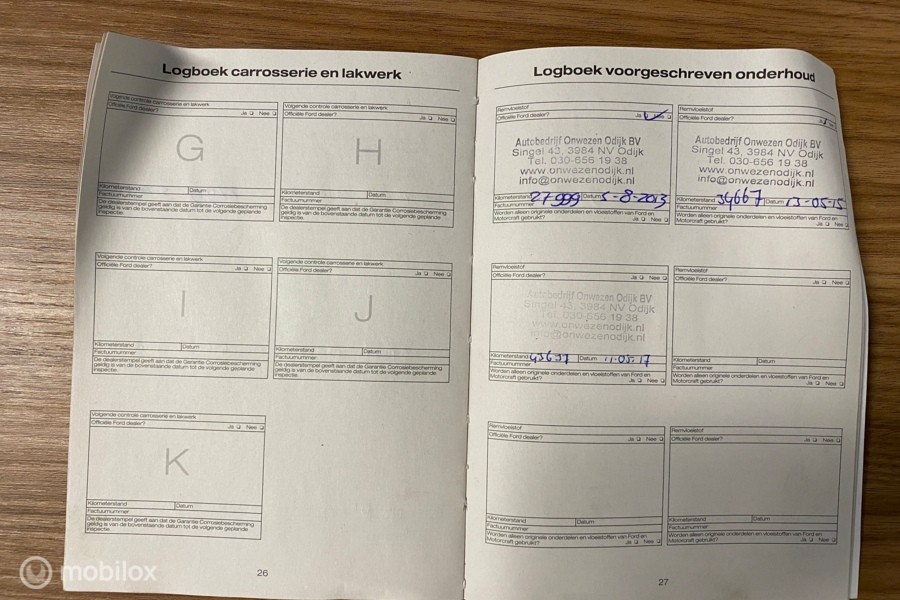 Logboek carrosserie en lakwerk
Volgende controle carrosserie en lakwerk
Officiële Ford dealer?
Ja Nee
G
Kilometerstand Datum
Factuurnummer
De dealerstempel geeft aan dat de Garantie Corrosiebescherming
geldig is van de bovenstaande datum tot de volgende geplande
inspectie.
Volgende controle carrosserie en lakwerk
Officiële Ford dealer?
Ja Nee
H
Kilometerstand Datum
Factuurnummer
De dealerstempel geeft aan dat de Garantie Corrosiebescherming
geldig is van de bovenstaande datum tot de volgende geplande
inspectie.
Volgende controle carrosserie en lakwerk
Officiële Ford dealer?
Ja Nee
I
Kilometerstand Datum
Factuurnummer
De dealerstempel geeft aan dat de Garantie Corrosiebescherming
geldig is van de bovenstaande datum tot de volgende geplande
inspectie.
Volgende controle carrosserie en lakwerk
Officiële Ford dealer?
Ja Nee
J
Kilometerstand Datum
Factuurnummer
De dealerstempel geeft aan dat de Garantie Corrosiebescherming
geldig is van de bovenstaande datum tot de volgende geplande
inspectie.
Volgende controle carrosserie en lakwerk
Officiële Ford dealer?
Ja Nee
K
Kilometerstand Datum
Factuurnummer
De dealerstempel geeft aan dat de Garantie Corrosiebescherming
geldig is van de bovenstaande datum tot de volgende geplande
inspectie.
26
Logboek voorgeschreven onderhoud
Remvloeistof
Officiële Ford dealer?
Ja Nee
Autobedrijf Onwezen Odijk BV
Singel 43, 3984 NV Odijk
Tel. 030-656 19 38
www.onwezenodijk.nl
info@onwezenodijk.nl
Kilometerstand 21999 Datum 5-8-2013
Factuurnummer
Worden alleen originele onderdelen en vloeistoffen van Ford en
Motorcraft gebruikt? Ja Nee
Remvloeistof
Officiële Ford dealer?
Autobedrijf Onwezen Odijk BV
Singel 43, 3984 NV Odijk
Tel. 030-656 19 38
www.onwezenodijk.nl
info@onwezenodijk.nl
Kilometerstand 34667 Datum 13-05-15
Factuurnummer
Worden alleen originele onderdelen en vloeistoffen van Ford en
Motorcraft gebruikt? Ja Nee
Remvloeistof
Officiële Ford dealer?
Ja Nee
Autobedrijf Onwezen Odijk BV
Singel 43, 3984 NV Odijk
Tel. 030-656 19 38
www.onwezenodijk.nl
info@onwezenodijk.nl
Kilometerstand Datum 11-05-17
Factuurnummer
Worden alleen originele onderdelen en vloeistoffen van Ford en
Motorcraft gebruikt? Ja Nee
Remvloeistof
Officiële Ford dealer?
Ja Nee
Kilometerstand Datum
Factuurnummer
Worden alleen originele onderdelen en vloeistoffen van Ford en
Motorcraft gebruikt? Ja Nee
Remvloeistof
Officiële Ford dealer?
Ja Nee
Kilometerstand Datum
Factuurnummer
Worden alleen originele onderdelen en vloeistoffen van Ford en
Motorcraft gebruikt? Ja Nee
Remvloeistof
Officiële Ford dealer?
Ja Nee
Kilometerstand Datum
Factuurnummer
Worden alleen originele onderdelen en vloeistoffen van Ford en
Motorcraft gebruikt? Ja Nee
27
mobilox